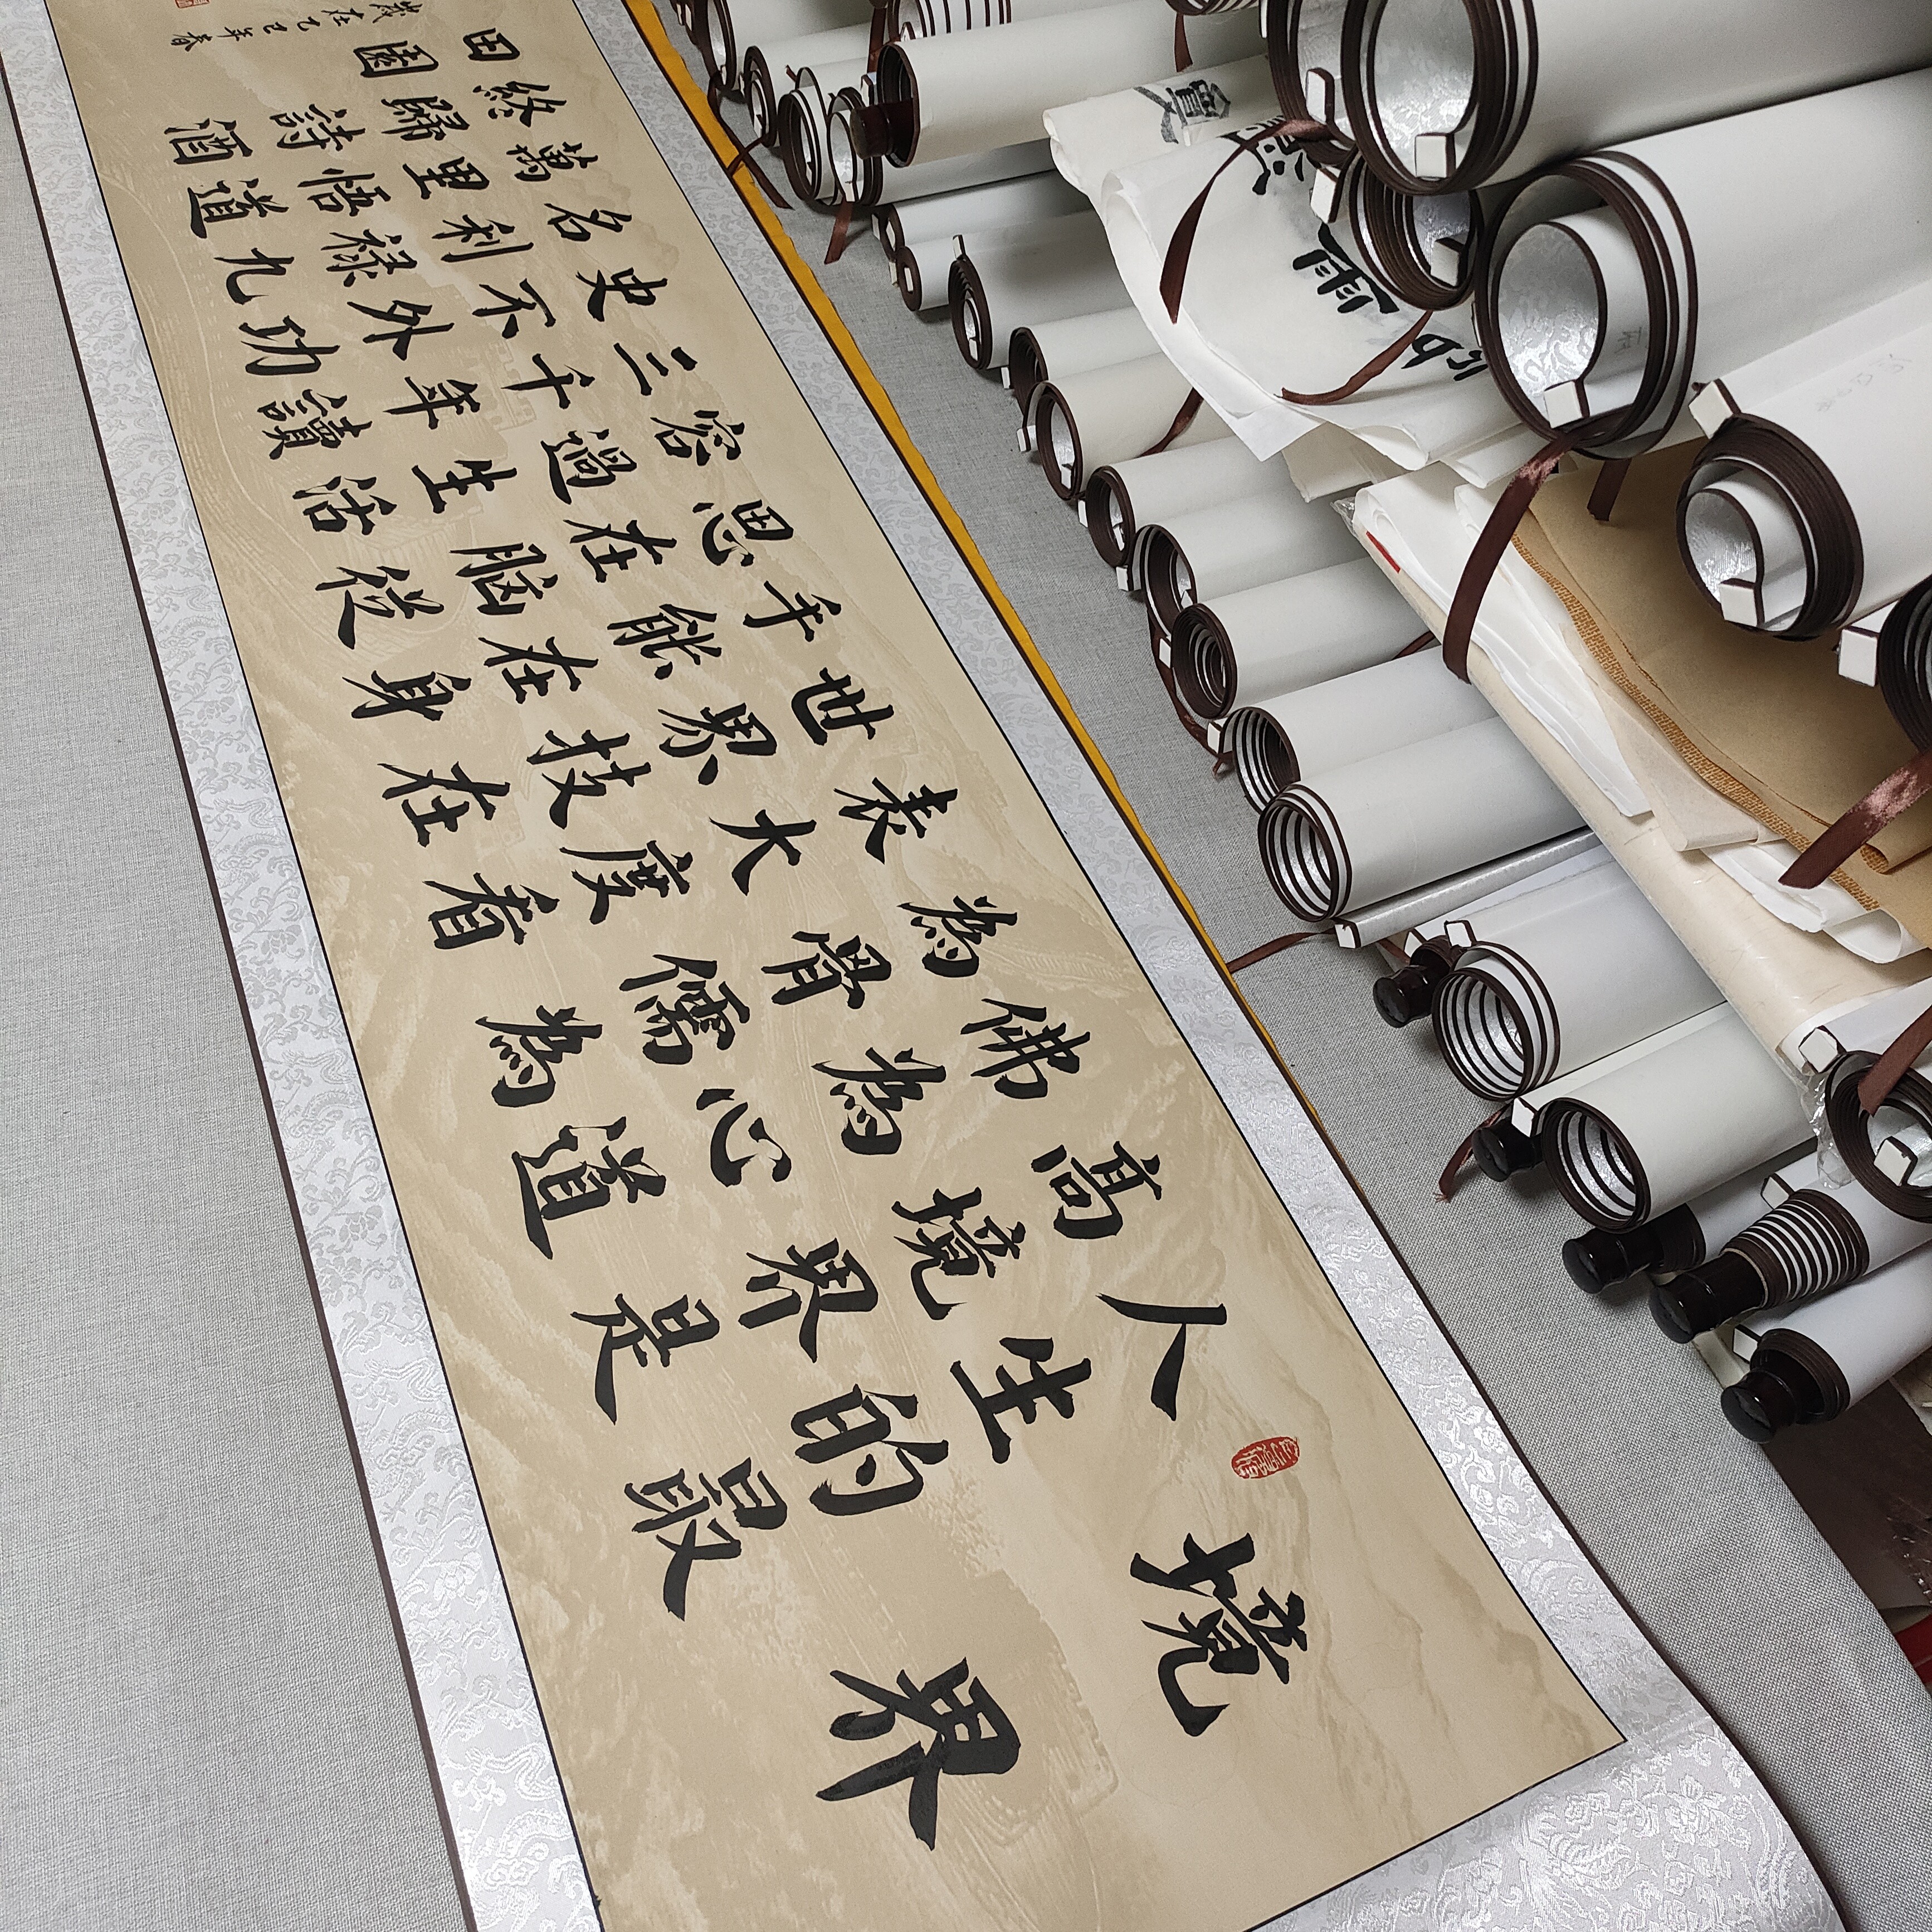 境界
人生的最
高境界是
佛為心道
為骨儒為
表大度看
世界技在
手能在身
思在脑從
容過生活
三千年讀
史不外功
名利禄九
萬里悟道
終歸詩酒
田園
歲在乙巳年春
雨